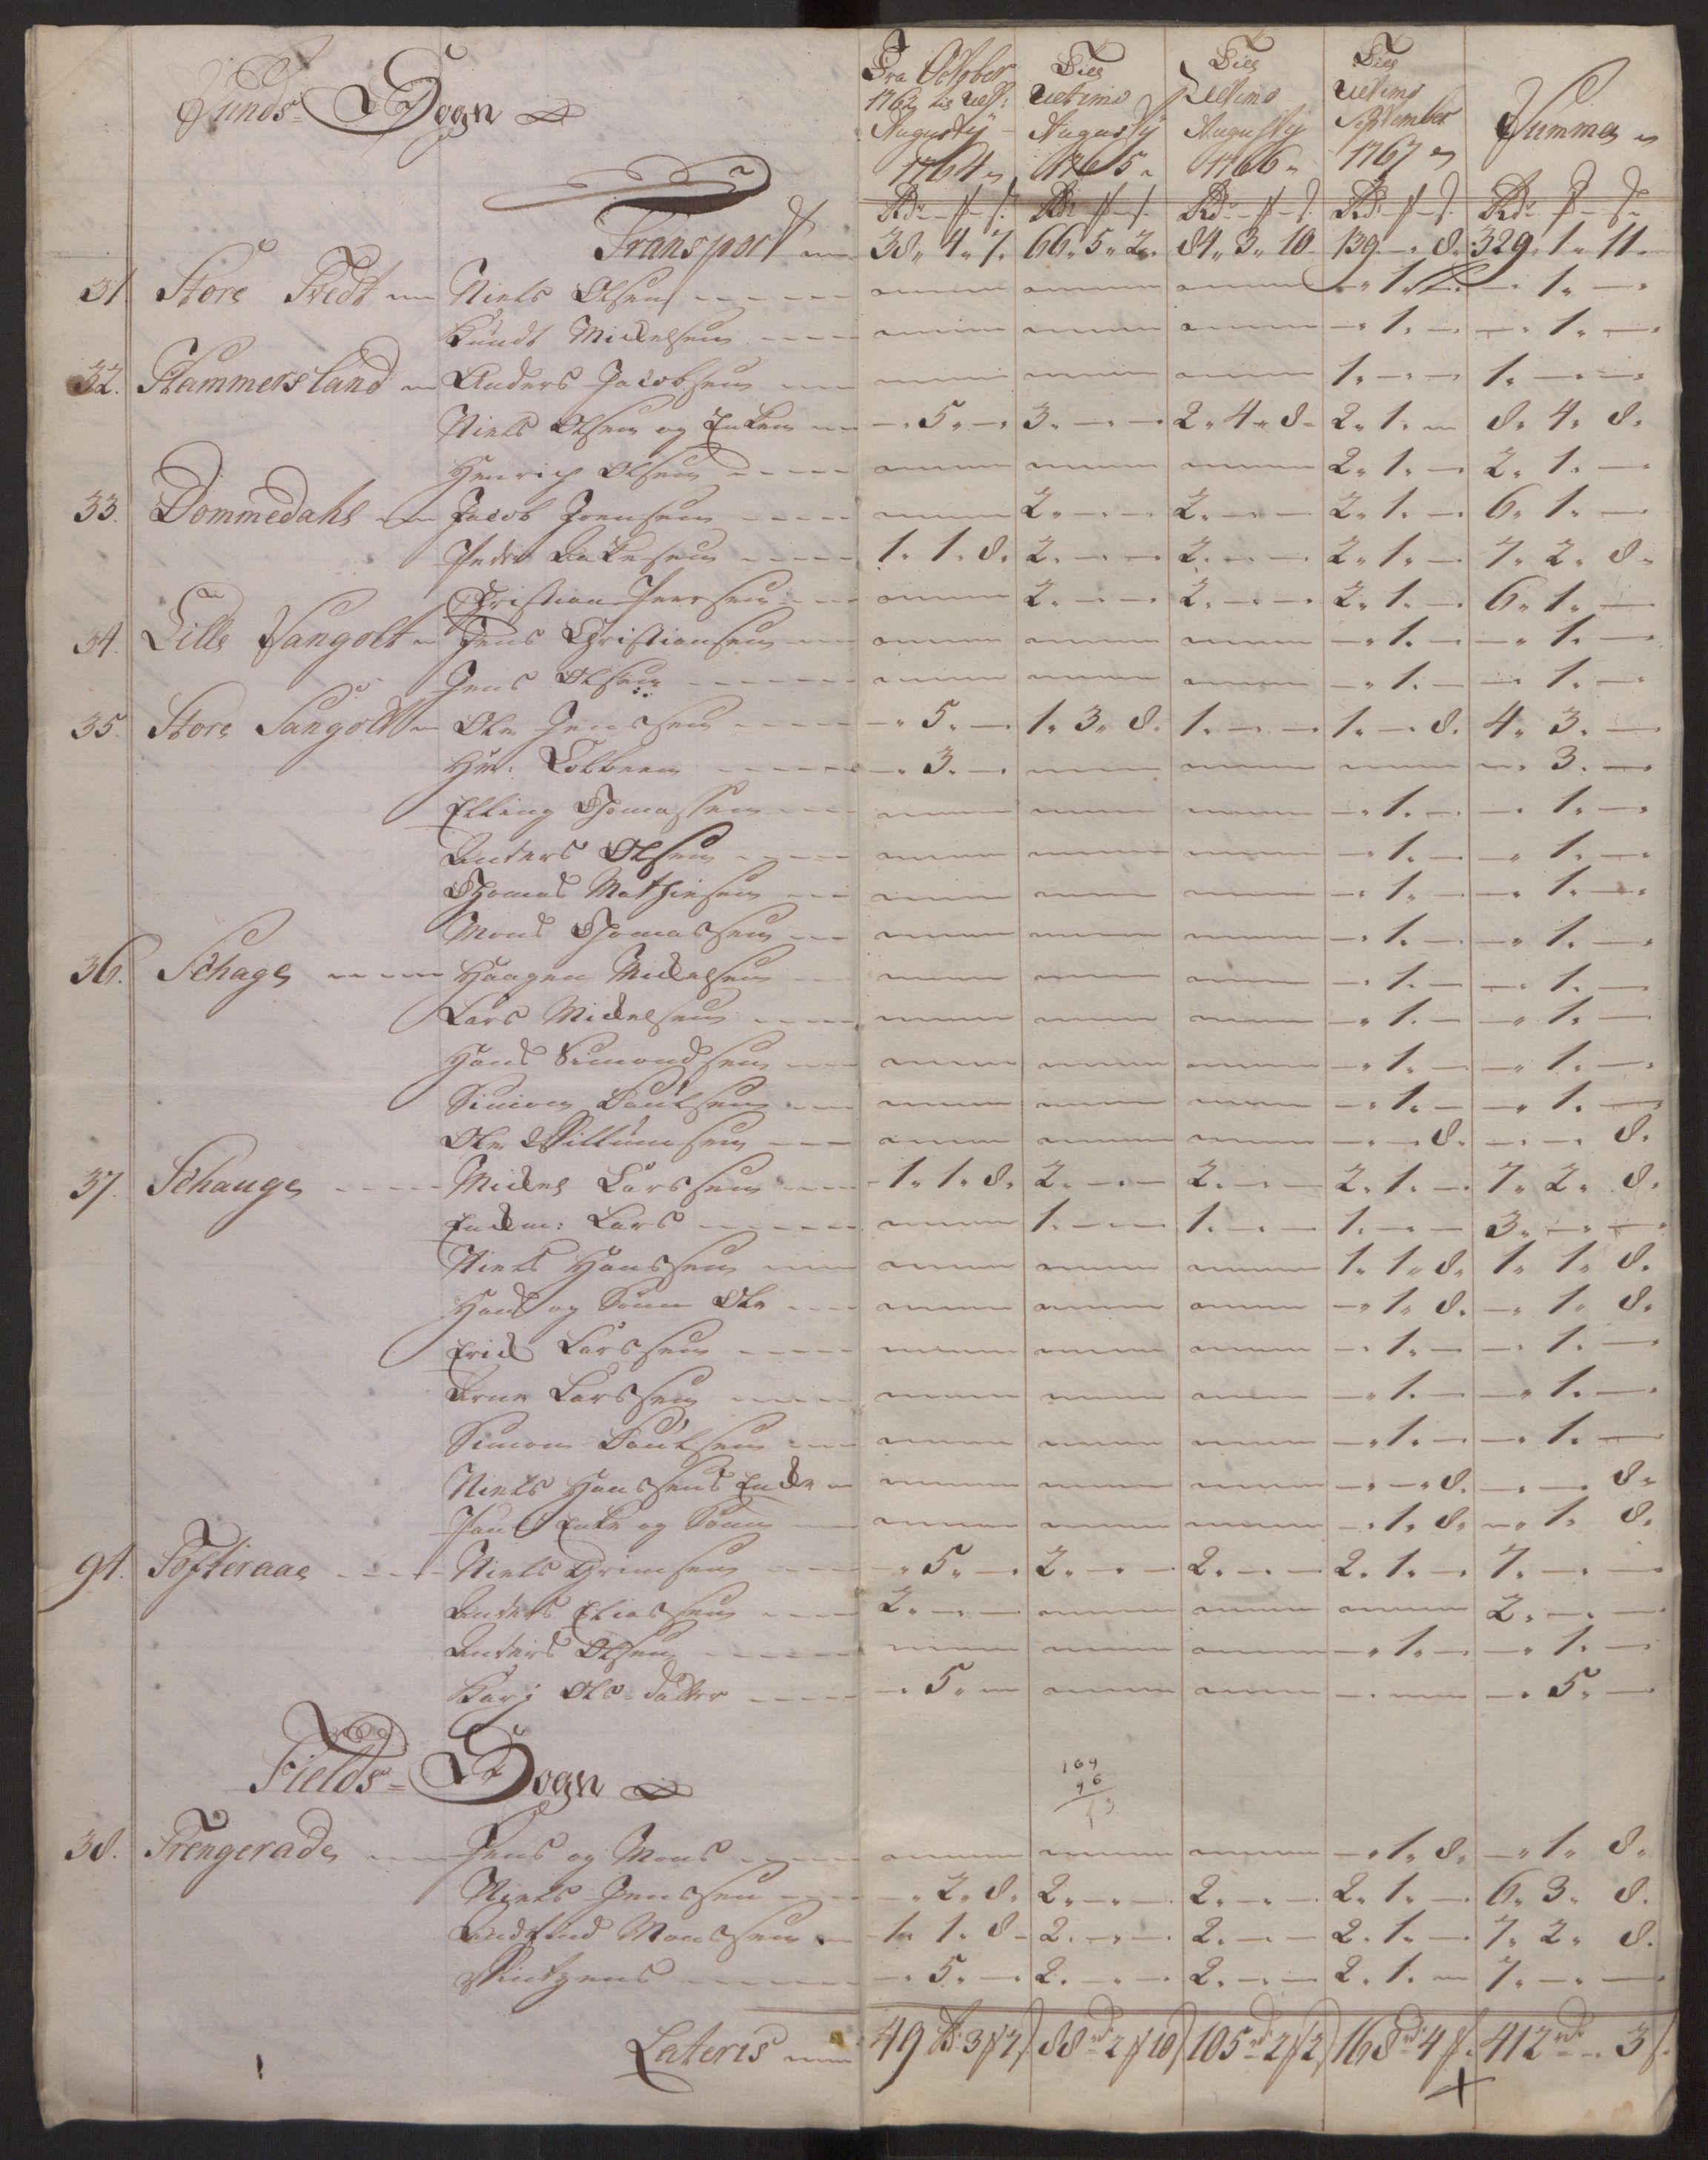 Sunds Sogn
Fra October 1762 til Ult: Augusty 1764
Till Ultimo Augusty 1765
Till Ultimo Augusty 1766
Till Ultimo September 1767
Summa
Transport 38. 4. 7. 66. 5. 2. 84. 3. 10. 139. - 8. 329. 1. 11.
31. Store Tvedt Niels Olsen - 1. - - 1. -
Knudt Mickelsen - 1. - - 1. -
32. Hammersland Anders Jacobsen 1. - - 1. - -
Niels Olsen og Enken - 5. - 3. - - 2. 4. 8. 2. 1. - 8. 4. 8.
Henrich Olsen 2. 1. - 2. 1. -
33. Dommedahl Jacob Joensen 2. - - 2. - - 2. 1. - 6. 1. -
Peder 1. 1. 8. 2. - - 2. - - 2. 1. - 7. 2. 8.
Christian Iversen 2. - - 2. - - 2. 1. - 6. 1. -
34. Lille Sangolt Jens Christiansen - 1. - - 1. -
Jens Olsen - 1. - - 1. -
35. Store Sangolt Ole Jenssen - 5. - 1. 3. 8. 1. - - 1. - 8. 4. 3. -
Hr: - 3. - - 3. -
Elling Thomassen - 1. - - 1. -
Anders Olsen - 1. - - 1. -
Thomas Mathiesen - 1. - - 1. -
Mons Thomassen - 1. - - 1. -
36. Schage Haagen Mickelsen - 1. - - 1. -
Lars Mickelsen - 1. - - 1. -
Hans Simondsen - 1. - - 1. -
Simon Poulsen - 1. - - 1. -
Ole Willumsen - - 8. - - 8.
37. Schauge Mickel Larssen 1. 1. 8. 2. - - 2. - - 2. 1. - 7. 2. 8.
Enken: Lars 1. - - 1. - - 1. - - 3. - -
Niels Hanssen 1. 1. 8. 1. 1. 8.
Hans og Sønn Ole - 1. 8. - 1. 8.
Erick Larssen - 1. - - 1. -
Arne Larssen - 1. - - 1. -
Simon Poulsen - 1. - - 1. -
Niels Hanssens Enke - - 8. - - 8.
Enke og Sønn - 1. 8. - 1. 8.
91. Tofteraae Niels Grimsen - 5. - 2. - - 2. - - 2. 1. - 7. - -
Anders Eliassen 2. - - 2. - -
Anders Olsen - 1. - - 1. -
Karj Ols datter - 5. - - 5. -
Fields Sogn
169
96
73
38. Trengerade Jens og Mons - 1. 8. - 1. 8.
Niels Jenssen - 2. 8. 2. - - 2. - - 2. 1. - 6. 3. 8.
Amdtend Monssen 1. 1. 8. 2. - - 2. - - 2. 1. - 7. 2. 8.
Wintzens - 5. - 2. - - 2. - - 2. 1. - 7. - -
Lateris 49 rd 3 # 7 88 rd 2 # 10 105 rd 2 # 2 168 rd 4 # 412 rd - 3